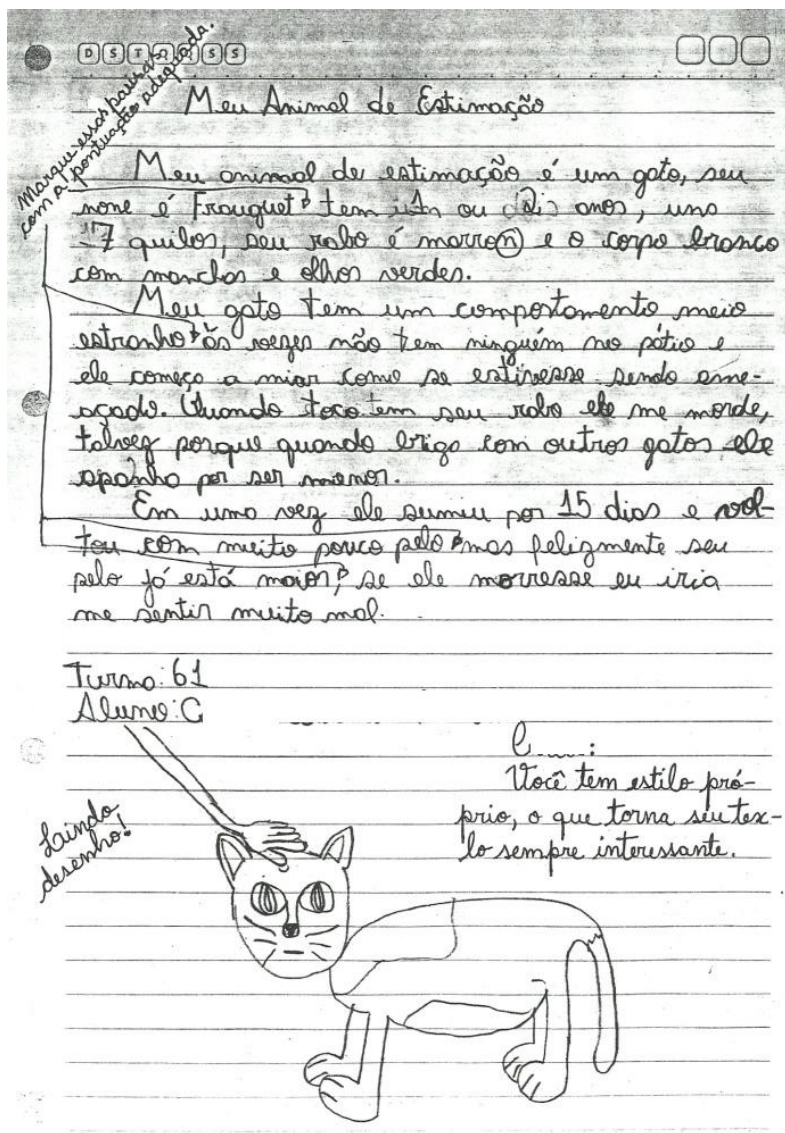 D S T Q Q S S
Marque essas pausas
com a pontuação adequada.
Meu Animal de Estimação
Meu animal de estimação é um gato, seu
nome é Frouguet tem um ou dois anos, uns
17 quilos, seu rabo é marron e o corpo branco
com manchas e olhos verdes.
Meu gato tem um comportamento meio
estranho às vezes não tem ninguém no pátio e
ele começa a miar como se estivesse sendo ame-
açado. Quando toco em seu rabo ele me morde,
talvez porque quando briga com outros gatos ele
apanha por ser menor.
Em uma vez ele sumiu por 15 dias e vol-
tou com muito pouco pelo mas felizmente seu
pelo já está maior, se ele morresse eu iria
me sentir muito mal.
Turma: 61
Aluno: C
C......:
Você tem estilo pró-
prio, o que torna seu tex-
to sempre interessante.
Laindo
desenho!